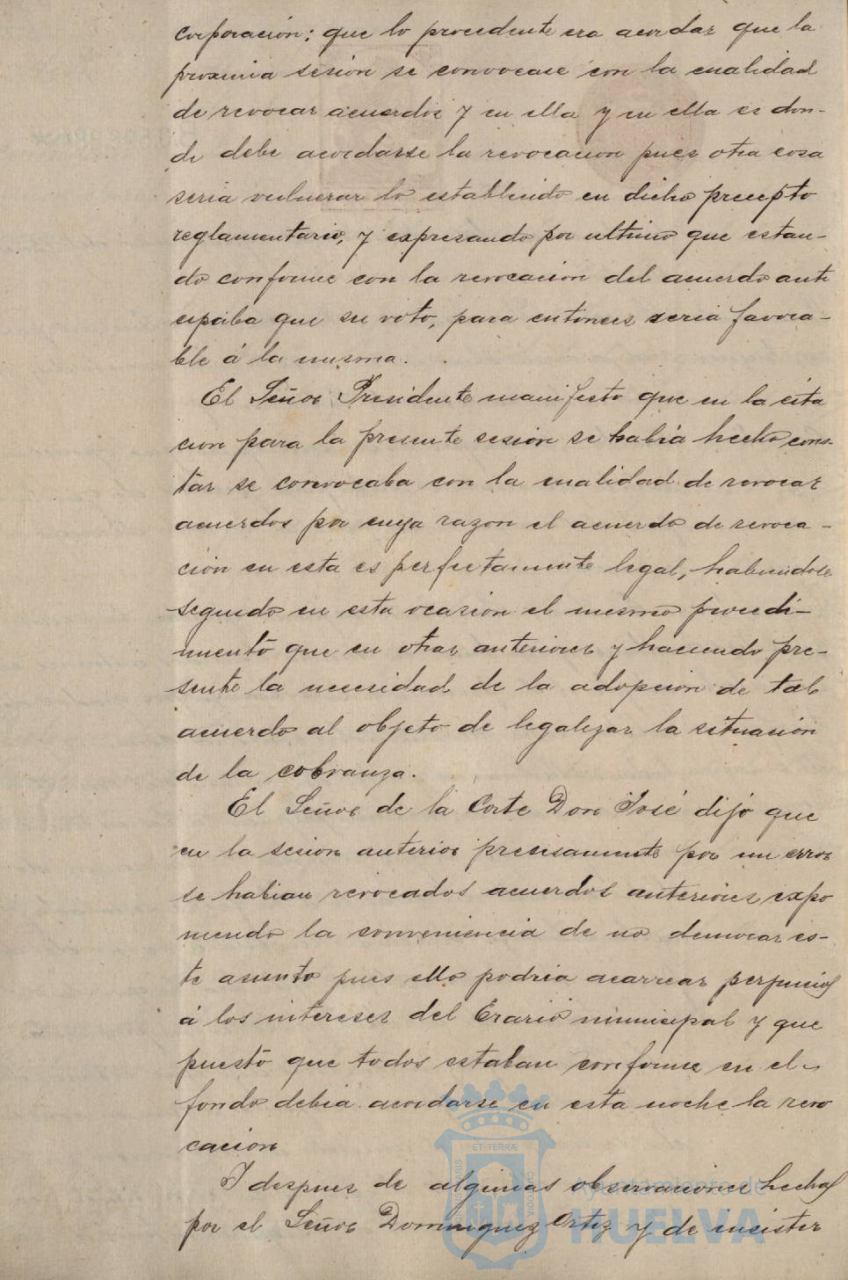 corporación; que lo procedente era acordar que la
proxima sesión se convocase con la cualidad
de revocar acuerdos y en ella y en ella es don-
de debe acordarse la revocacion pues otra cosa
seria vulnerar lo establecido en dicho precepto
reglamentario, y expresando por ultimo que estan-
do conforme con la revocacion del acuerdo anti
cipaba que su voto, para entonces seria favora-
ble á la misma.
El Señor Presidente manifestó que en la cita
cion para la presente sesión se había hecho cons-
tar se convocaba con la cualidad de revocar
acuerdos por cuya razon el acuerdo de revoca-
ción en esta es perfectamente legal, habiendose
seguido en esta ocasión el mismo procedi-
miento que en otras anteriores y haciendo pre-
sente la necesidad de la adopcion de tal
acuerdo al objeto de legalizar la situación
de la cobranza.
El Señor de la Corte Don José dijo que
en la sesion anterior precisamente por un error
se habian revocados acuerdos anteriores expo
niendo la conveniencia de no demorar es-
te asunto pues ello podria acarrear perjuicios
á los intereses del Erario municipal y que
puesto que todos estaban conforme en el
fondo debia acordarse en esta noche la revo
cacion
Y despues de algunas observaciones hechas
por el Señor Dominguez Ortiz y de insistir
ET TERRÆ
Ayuntamiento de
HUELVA